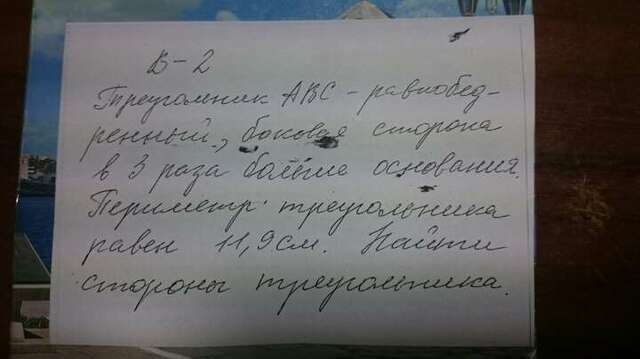 В-2
Треугольник АВС - равнобед-
ренный, боковая сторона
в 3 раза больше основания.
Периметр треугольника
равен 11,9 см. Найти
стороны треугольника.